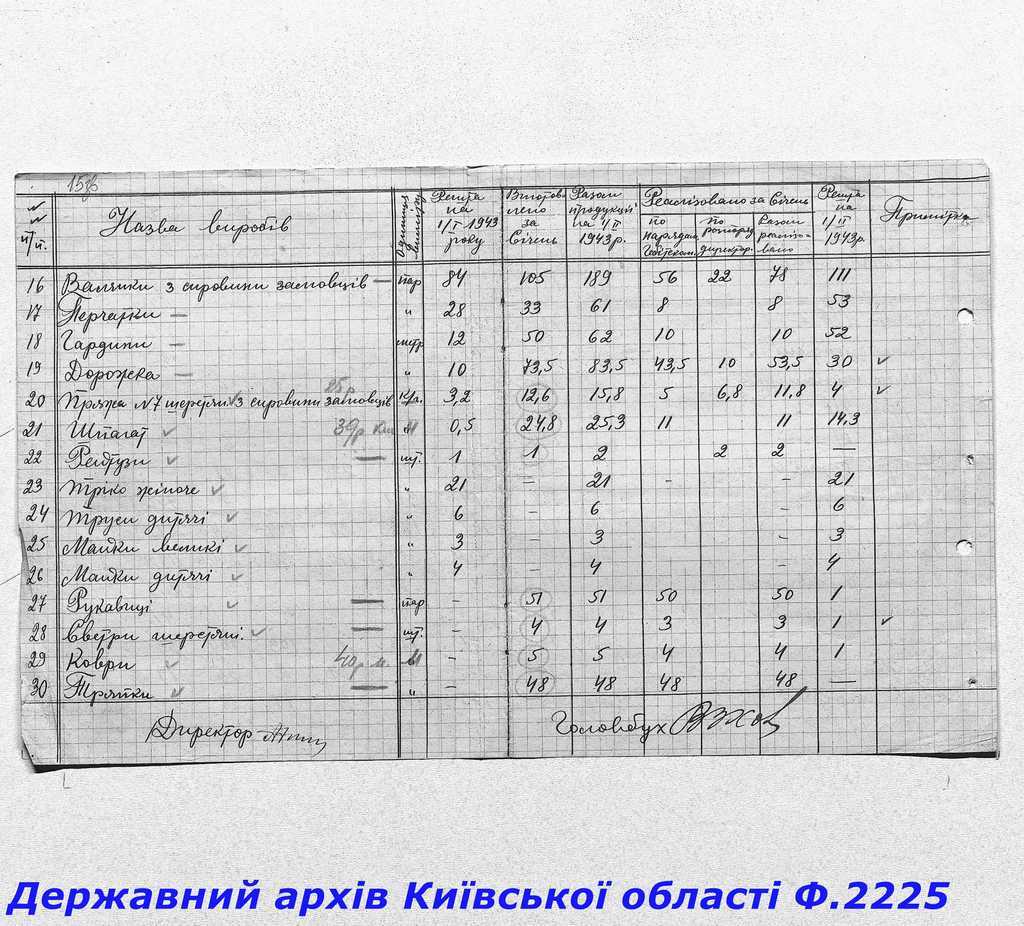 №№ п/п.
Назва виробів
Одиниця
Решта на 1/I 1943 року
Виготовлено за Січень
Разом продукції на 1/II 1943р.
Реалізовано за Січень
по нарядам
по розпоряд. директор.
Разом реалізовано
Решта на 1/II 1943р.
Примітка
16 Валянки з сировини замовців — пар 84 105 189 56 22 78 111
17 Перчатки — " 28 33 61 8 8 53
18 Гардини — метр 12 50 62 10 10 52
19 Дорожка — " 10 73,5 83,5 43,5 10 53,5 30 ✓
25р
20 Пряжа №7 шерстян. з сировини замовців кгр. 3,2 12,6 15,8 5 6,8 11,8 4 ✓
21 Шпагат ✓ 39р кіл 0,5 24,8 25,3 11 11 14,3
22 Рейтузи ✓ — шт. 1 1 2 2 2 —
23 Тріко жіноче ✓ " 21 – 21 - – 21
24 Труси дитячі ✓ " 6 – 6 – 6
25 Майки великі ✓ " 3 – 3 – 3
26 Майки дитячі ✓ " 4 – 4 – 4
27 Рукавиці ✓ — пар – 51 51 50 50 1
28 Светри шерстяні. ✓ — шт. – 4 4 3 3 1 ✓
29 Коври ✓ 40р м. м – 5 5 4 4 1
30 Тряпки ✓ — " – 48 48 48 48 —
Директор
Головбух
Державний архів Київської області Ф.2225